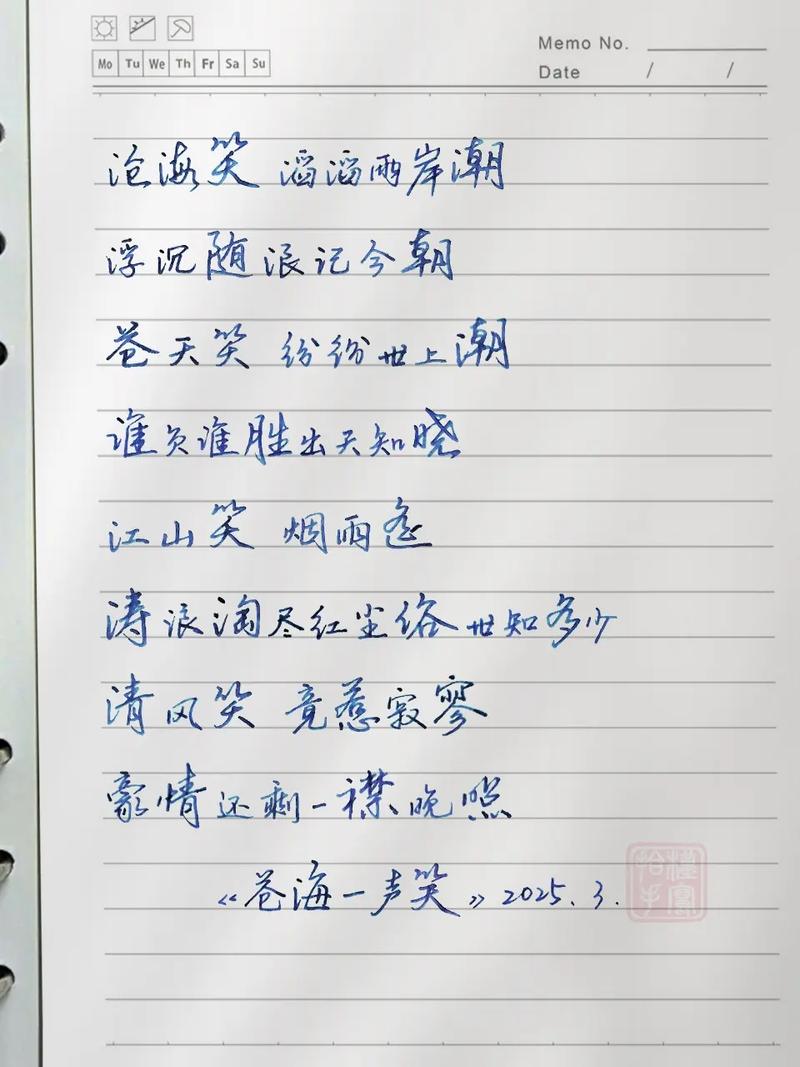 Memo No.
Mo Tu We Th Fr Sa Su
Date / /
沧海笑 滔滔两岸潮
浮沉随浪记今朝
苍天笑 纷纷世上潮
谁负谁胜出天知晓
江山笑 烟雨遥
涛浪淘尽红尘俗世知多少
清风笑 竟惹寂寥
豪情还剩一襟晚照
《苍海一声笑》2025.3.